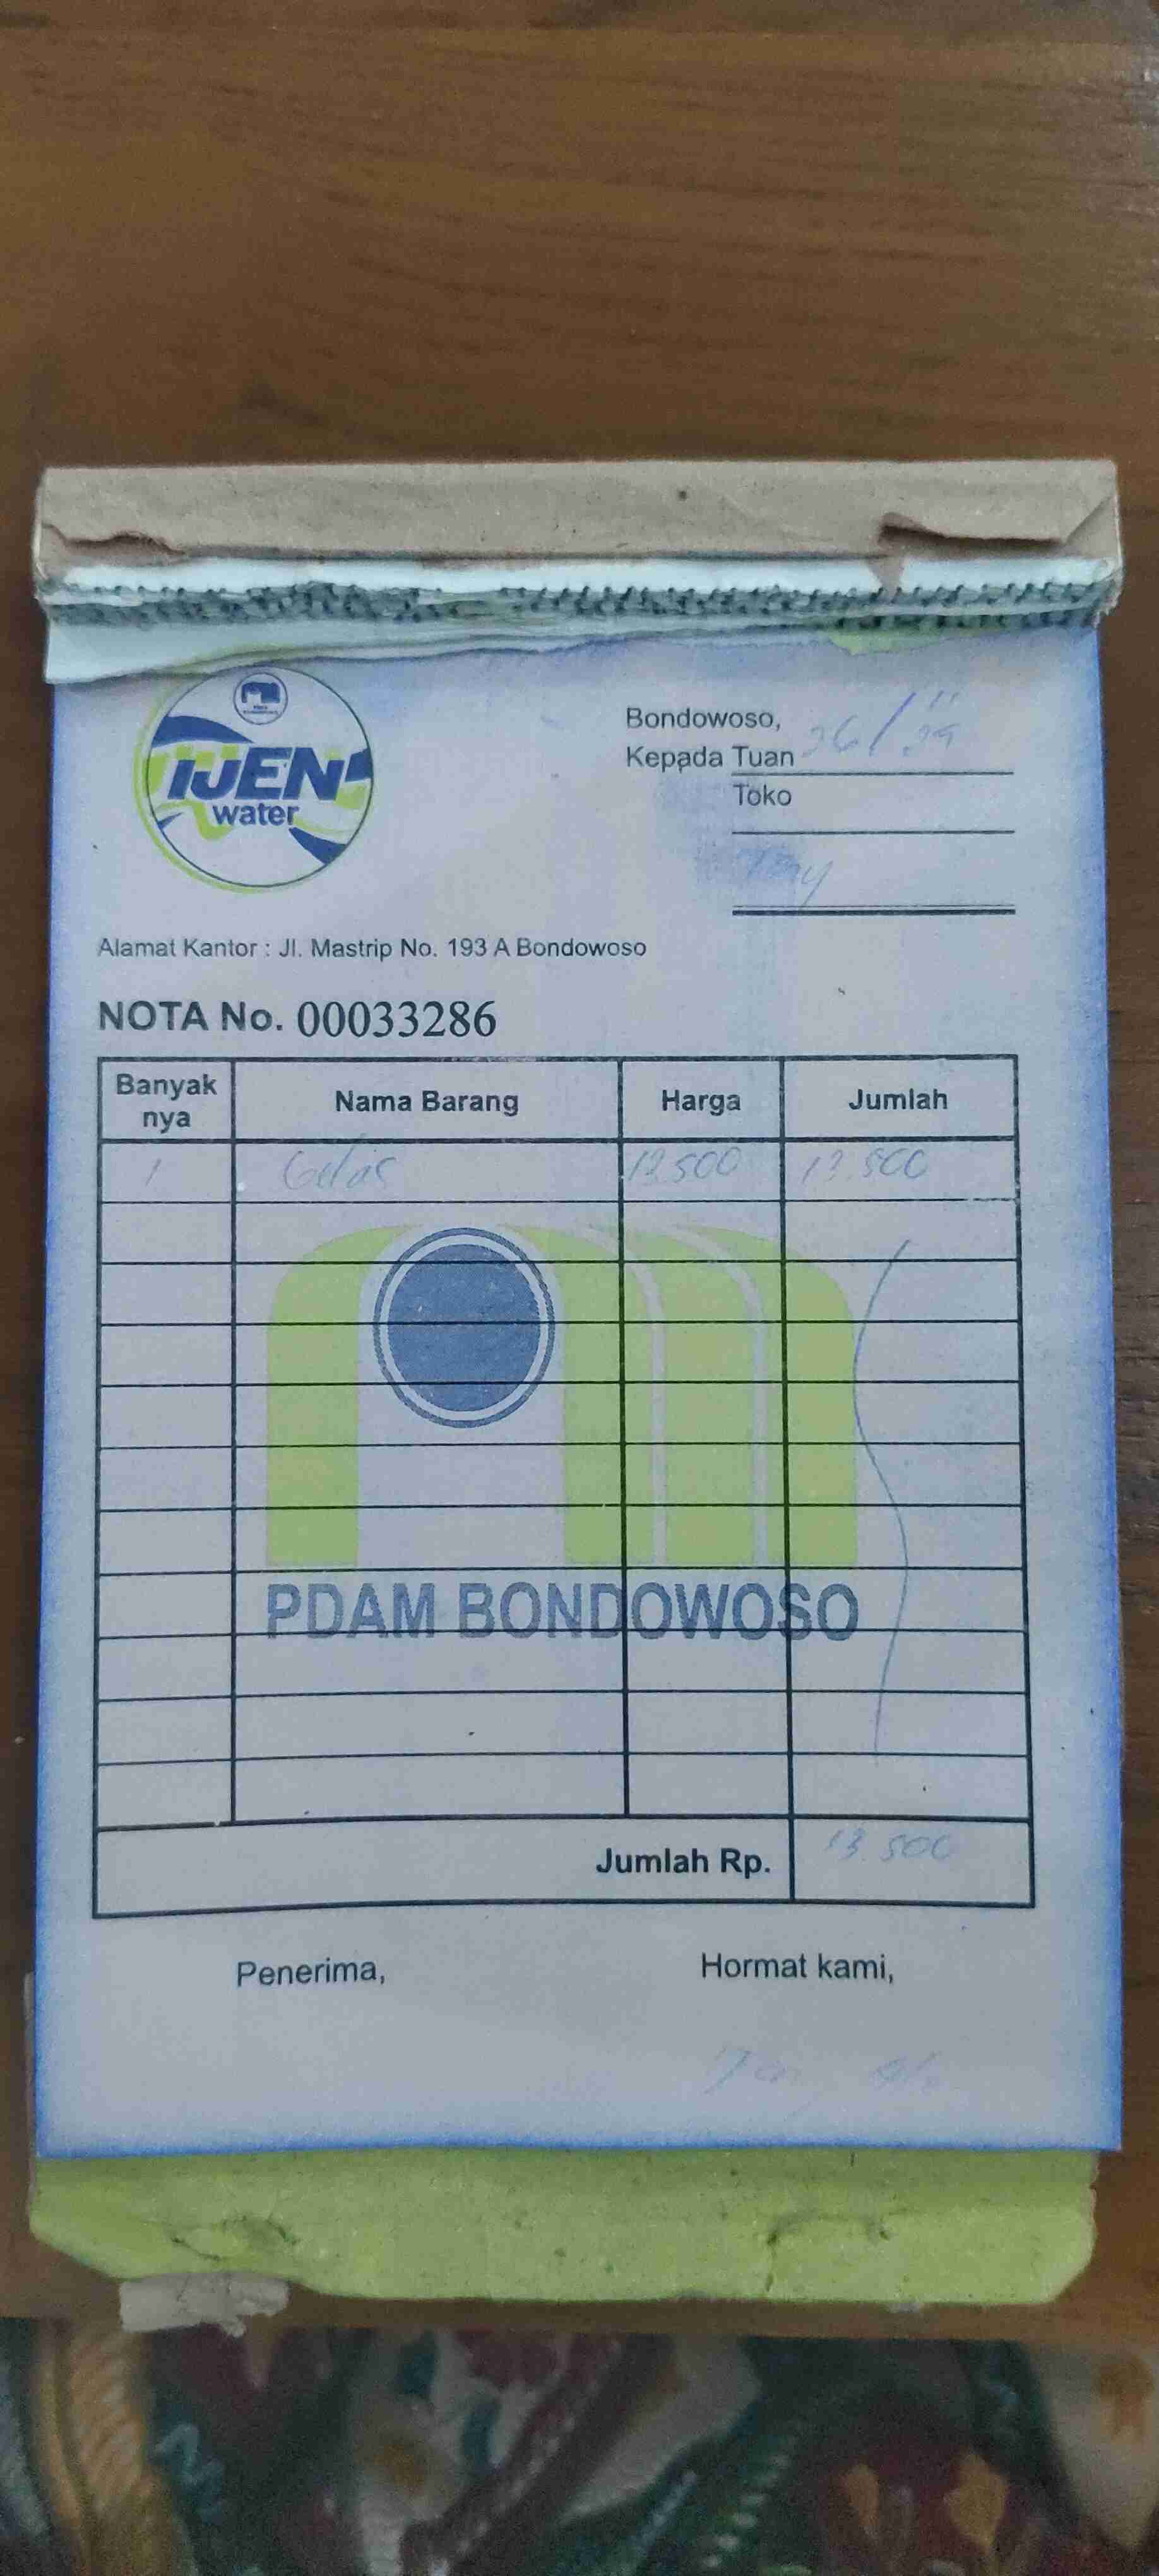 IJEN
water
Bondowoso, 26/11
Kepada Tuan
Toko
Alamat Kantor : Jl. Mastrip No. 193 A Bondowoso
NOTA No. 00033286
Banyak nya Nama Barang Harga Jumlah
1 Gelas 13.500 13.500
PDAM BONDOWOSO
Jumlah Rp. 13.500
Penerima, Hormat kami,